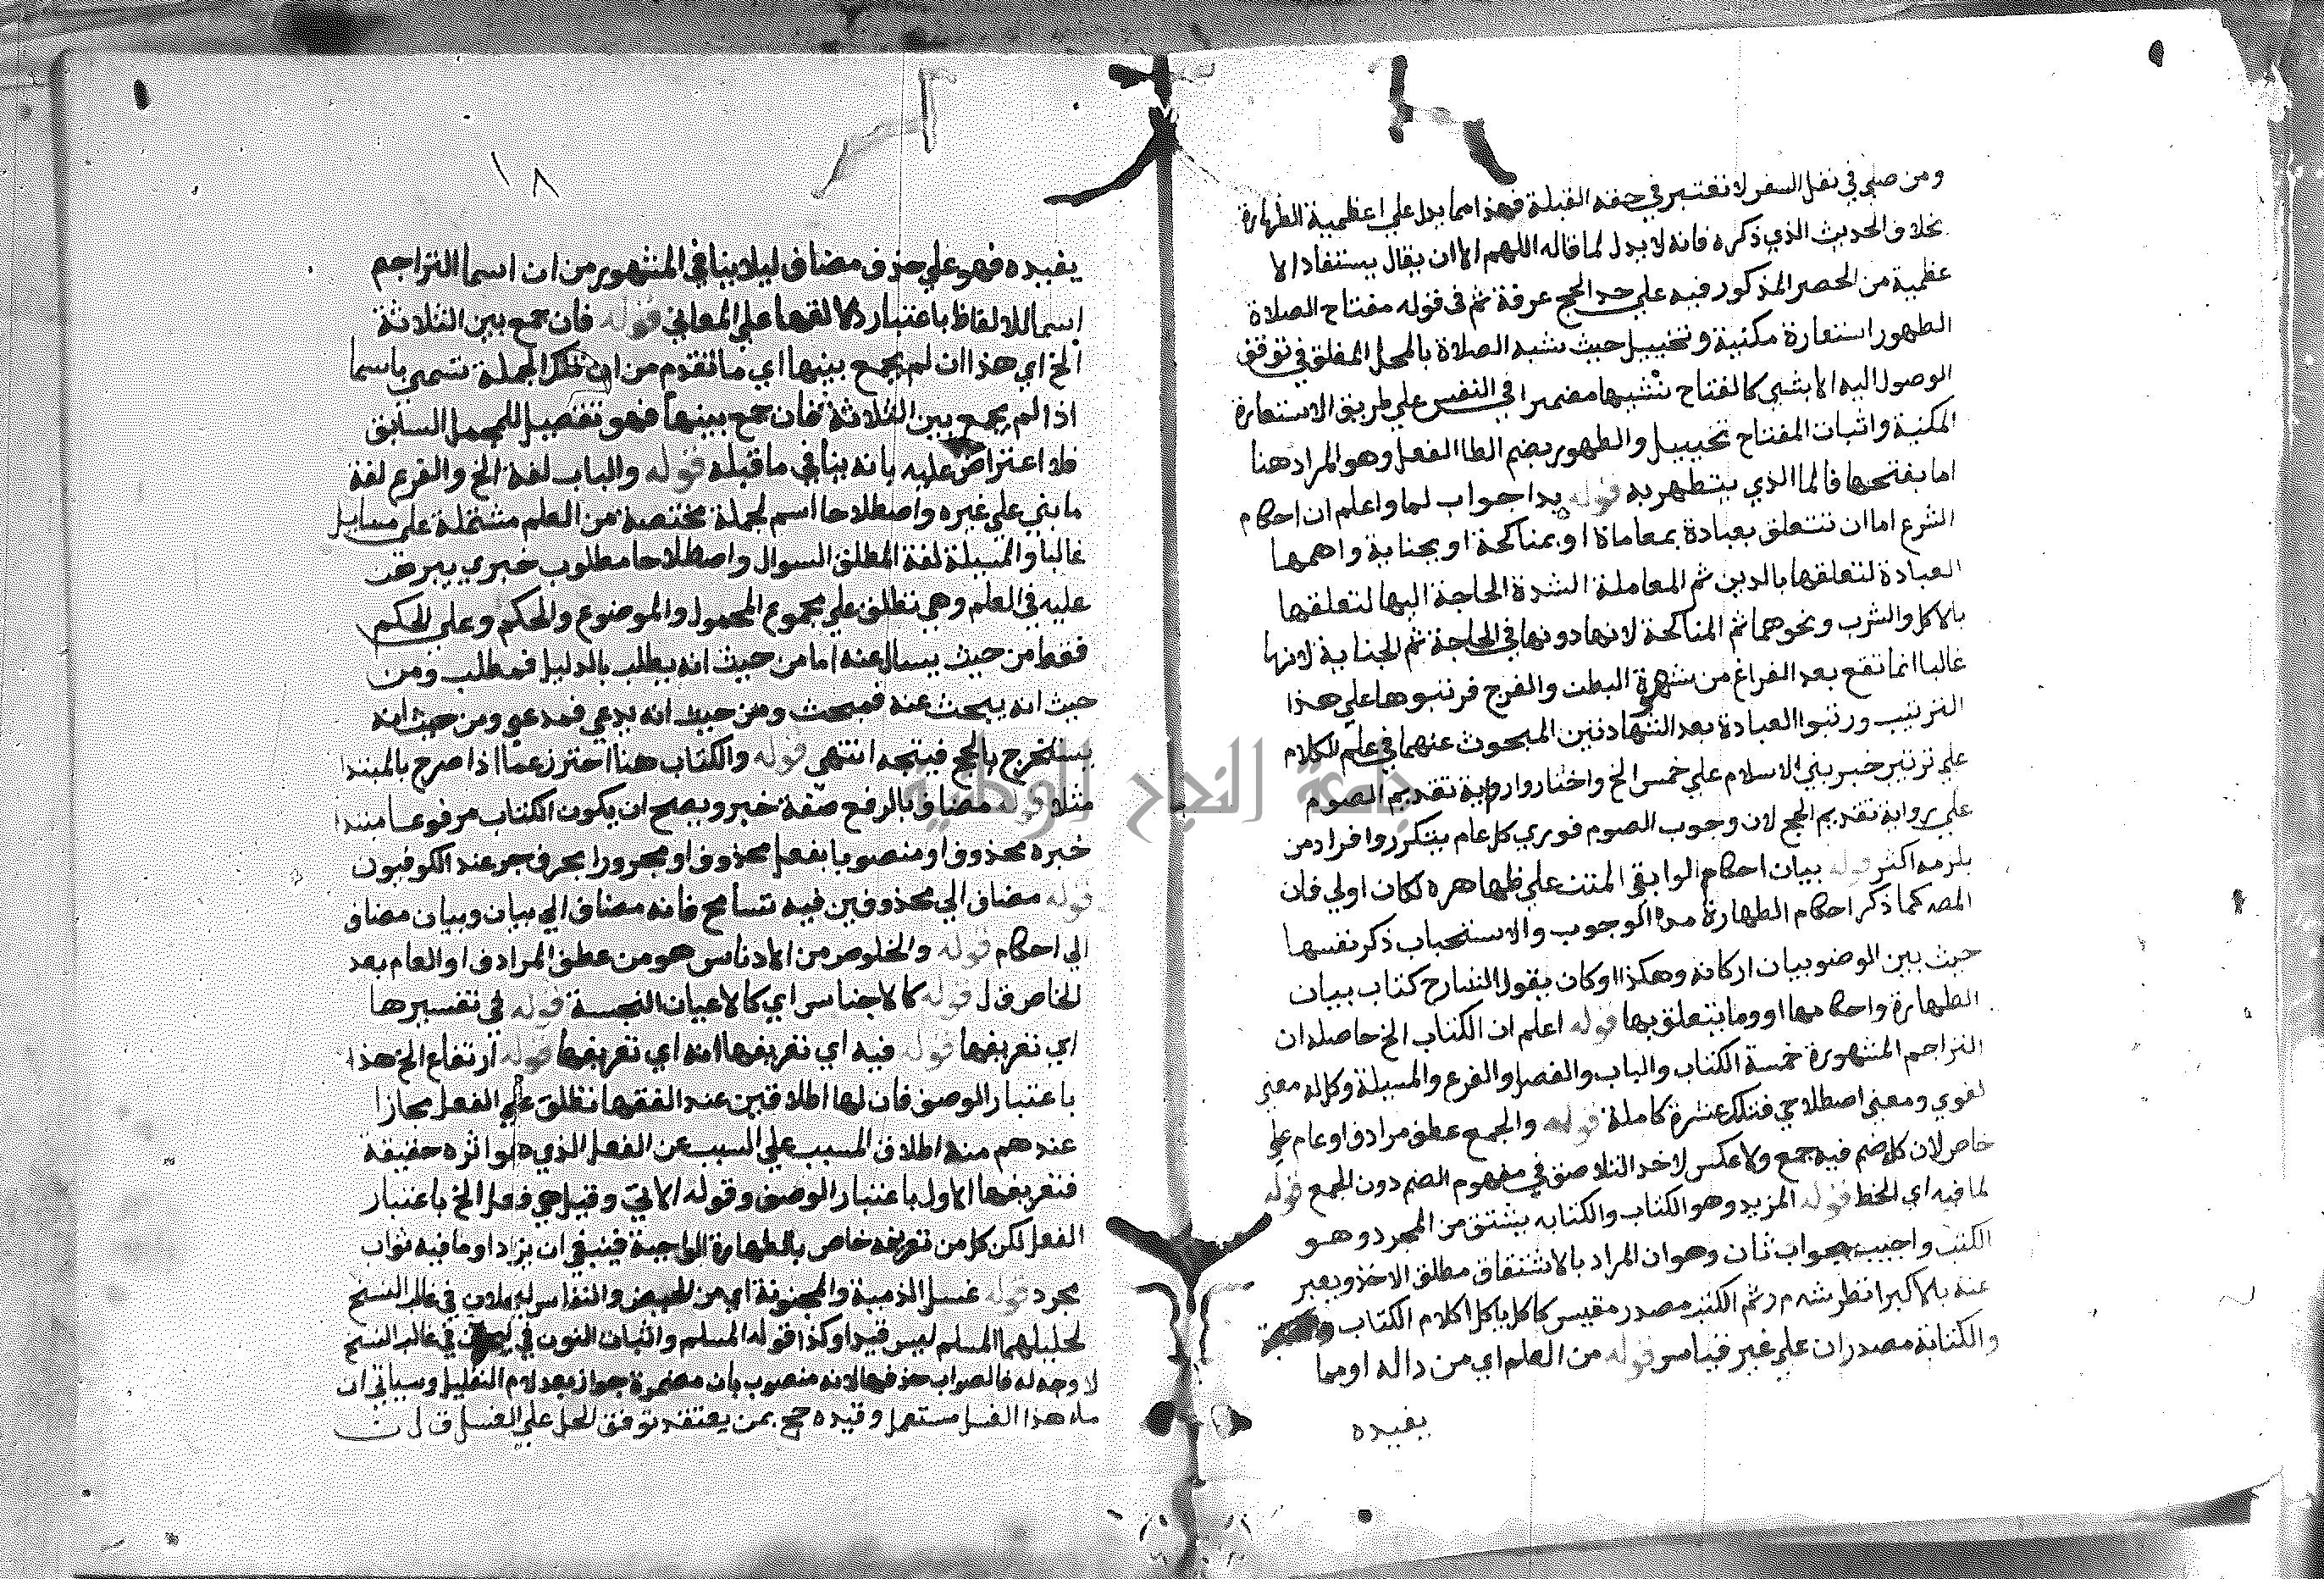 ومن صلي في نفل السفر لا تعتبر في حقه القبلة فهذا مما يدل علي اعظمية الطهارة
بخلاف الحديث الذي ذكره فانه لا يدل لما قاله اللهم الا ان يقال يستفاد الا
عظمية من الحصر المذكور فيه علي حد الحج عرفة ثم في قوله مفتاح الصلاة
الطهور استعارة مكنية وتخييل حيث شبه الصلاة بالمحل المغلق في توقف
الوصول اليه الا بشي كالمفتاح تشبيها مضمرا في النفس علي طريق الاستعارة
المكنية واثبات المفتاح تخييل والطهور بضم الطا الفعل وهو المراد هنا
اما بفتحها فالما الذي يتطهر به قوله بدا جواب لما واعلم ان احكام
الشرع اما ان تتعلق بعبادة بمعاملة او بمناكحة او بجناية واهمها
العبادة لتعلقها بالدين ثم المعاملة الشدة الحاجة اليها لتعلقها
بالاكل والشرب ونحوهما ثم المناكحة لانها دونها في الحاجة ثم الجناية لانها
غالبا انما تقع بعد الفراغ من شهوة البطن والفرج فرتبوها علي هذا
الترتيب ورتبوا العبادة بعد الشهادتين المبحوث عنهما في علم الكلام
علي ترتيب خبر بني الاسلام علي خمس الخ واختاروا رواية تقديم الصوم
علي رواية تقديم الحج لان وجوب الصوم فوري كل عام يتكرر وافراد من
يلزمه اكثر قوله بيان احكام الوابقي المتن علي ظاهره لكان اولي فان
المصه كما ذكر احكام الطهارة من الوجوب والاستحباب ذكر نفسها
حيث بين الوضو ببيان اركانه وهكذا او كان يقول الشارح كتاب بيان
الطهارة واحكامها او وما يتعلق بها قوله اعلم ان الكتاب الخ حاصله ان
التراجم المشهورة خمسة الكتاب والباب والفصل والفرع والمسيلة وكل له معني
لغوي ومعني اصطلاحي فتلك عشرة كاملة قوله والجمع عطف مرادف او عام علي
خاص لان كل ضم فيه جمع ولا عكس لاخد التلاصق في مفهوم الضم دون الجمع قوله
لما فيه اي الخط قوله المزيد وهو الكتاب والكتابه يشتق من المجرد وهو
الكتب واجيب بجواب ثان وهو ان المراد بالاشتقاق مطلق الاخذ ويعبر
عنه بالاكبر انظر شه م ر ثم الكتب مصدر مقيس كاكل ياكل اكلا م الكتاب
والكتابة مصدران علي غير قياس قوله من العلم اي من داله او مما
يفيده
١٨
يفيده فهو علي حذف مضاف ليلا ينافي المشهور من ان اسما التراجم
اسما للالفاظ باعتبار دلالتها علي المعاني قوله فان جمع بين الثلاثة
الخ اي هذا ان لم يجمع بينها اي ما تقدم من ان تلك الجملة تسمي باسما
اذا لم يجمع بين الثلاثة فان جمع بينها فهو تفصيل للمجمل السابق
فلا اعتراض عليه بانه ينافي ما قبله قوله والباب لغة الخ والفرع لغة
ما بني علي غيره واصطلاحا اسم لجملة مختصة من العلم مشتملة علي مسايل
غالبا والمسيلة لغة المطلق السوال واصطلاحا مطلوب خبري يبرهن
عليه في العلم وهي تطلق علي مجموع المحمول والموضوع والحكم وعلي الحكم
فقط من حيث يسال عنه اما من حيث انه يطلب بالدليل فمطلب ومن
حيث انه يبحث عنه فمبحث ومن حيث انه يدعي فمدعي ومن حيث انه
يستخرج بالحج فنتيجه انتهي قوله والكتاب هنا احترز عما اذا صرح بالمبتدا
مثلا قوله مضاف بالرفع صفة خبر ويصح ان يكون الكتاب مرفوعا مبتدا
خبره محذوف او منصوبا بفعل محذوف او مجرورا بحرف جر عند الكوفيون
قوله مضاف الي محذوفين فيه تسامح فانه مضاف الي بيان وبيان مضاف
الي احكام قوله والخلوص من الادناس هو من عطف المرادف او العام بعد
الخاص ق ل قوله كالانجاس اي كالاعيان النجسة قوله في تفسيرها
اي تعريفها قوله فيه اي تعريفها انه اي تعريفها قوله ارتفاع الخ هذا
باعتبار الوصف فان لها اطلاقين عند الفقها تطلق علي الفعل مجازا
عندهم من اطلاق المسبب علي السبب عن الفعل الذي هو اثره حقيقة
فتعريفها الاول باعتبار الوصف وقوله الاتي وقيل هي فعل الخ باعتبار
الفعل لكن كل من تعريفه خاص بالطهارة الواجبة فينبغي ان يزاد او ما فيه ثواب
مجرد قوله غسل الذمية والمجنونة اي من الحيض والنفاس في غالب النسخ
لحليلهما المسلم ليس قيدا وكذا قوله المسلم واثبات النون في في غالب النسخ
لا وجه له فالصواب حذفها لانه منصوب بان مضمرة جواز بعد لام التعليل وسياتي ان
ماء هذا الغسل مستعمل وقيده حج بمن يعتقد توقف الحل علي الغسل ق ل